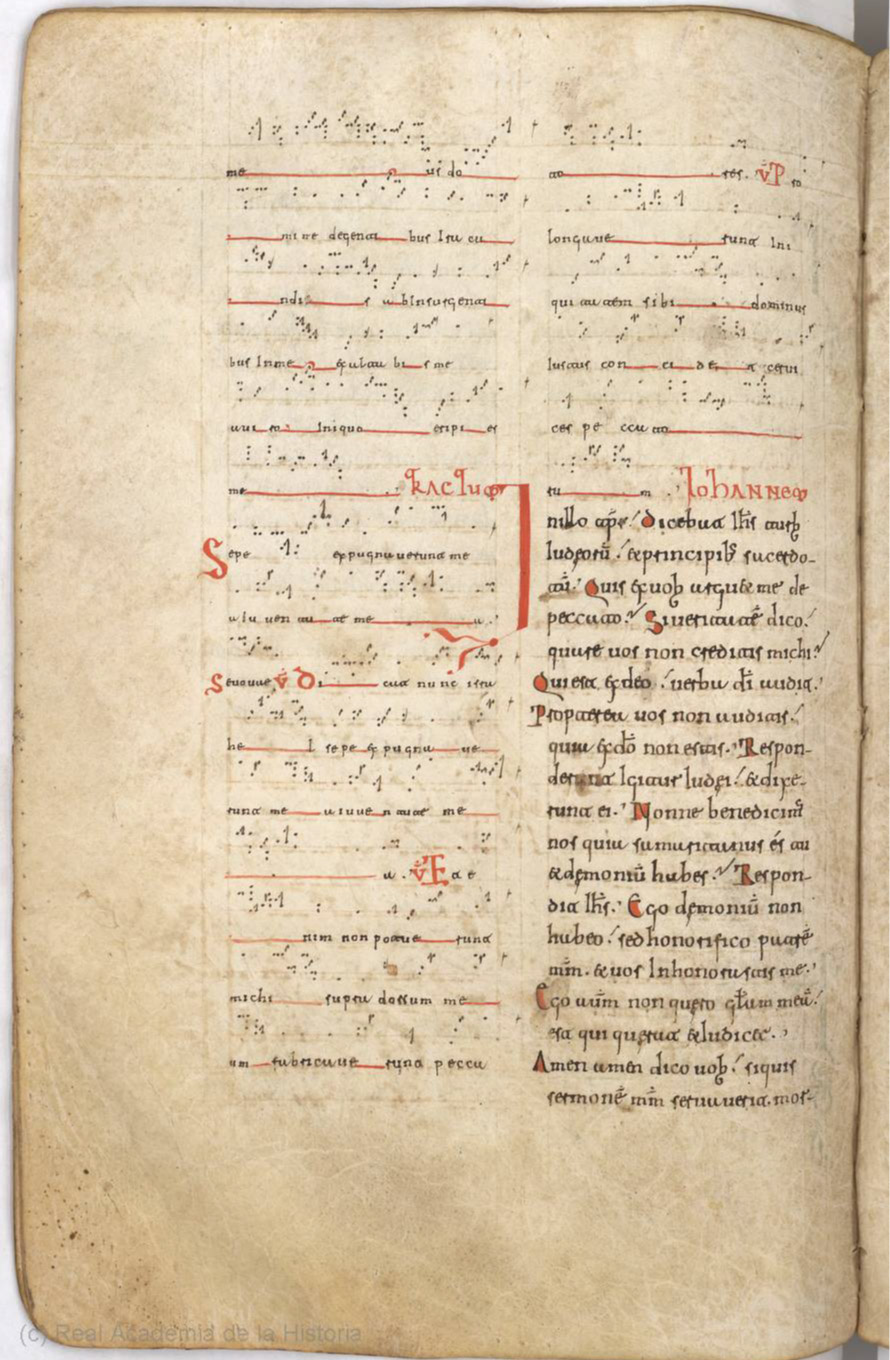 me us do
mi ne degenti bus Iracu
ndi s ab Insurgenti
bus Inme exaltabi s me
aui ro Iniquo eripi es
me TRACTUS
Sepe expugnauerunt me
a Iu uen tu te me a
Seuoue V Di cat nunc isra
he l sepe expugna ue
runt me a iuuen tute me
a . V Et e
nim non potue runt
michi supra dorsum me
um fabricaue runt pecca
to res. V Pro
longaue runt Ini
qui tatem sibi dominus
Iustus con ci de t cerui
ces pe cca to
ru m . IOHANNEM
In illo tp̄r Dicebat Ih̄s turb
Iudeorū et principib; sacerdo-
tū. Quis ex uob arguet me de
peccato. Siueritatē dico.
quare uos non creditis michi.
Quiest exdeo uerba dī audit.
Propterea uos non auditis.
quia exdō non estis. Respon-
derunt Igitur Iudei. & dixe-
runt ei. Nonne benedicim̄
nos quia samaritanus és tu
& demoniū habes. Respon-
dit Ih̄s. Ego demoniū non
habeo. sed honorifico patrē
mm̄. & uos Inhonorastis me.
Ego aūm non quero gl̄am meā.
est qui querat & Iudicet.
Amen amen dico uob. siquis
sermonē mm̄ seruauerit. mor-
(c) Real Academia de la Historia